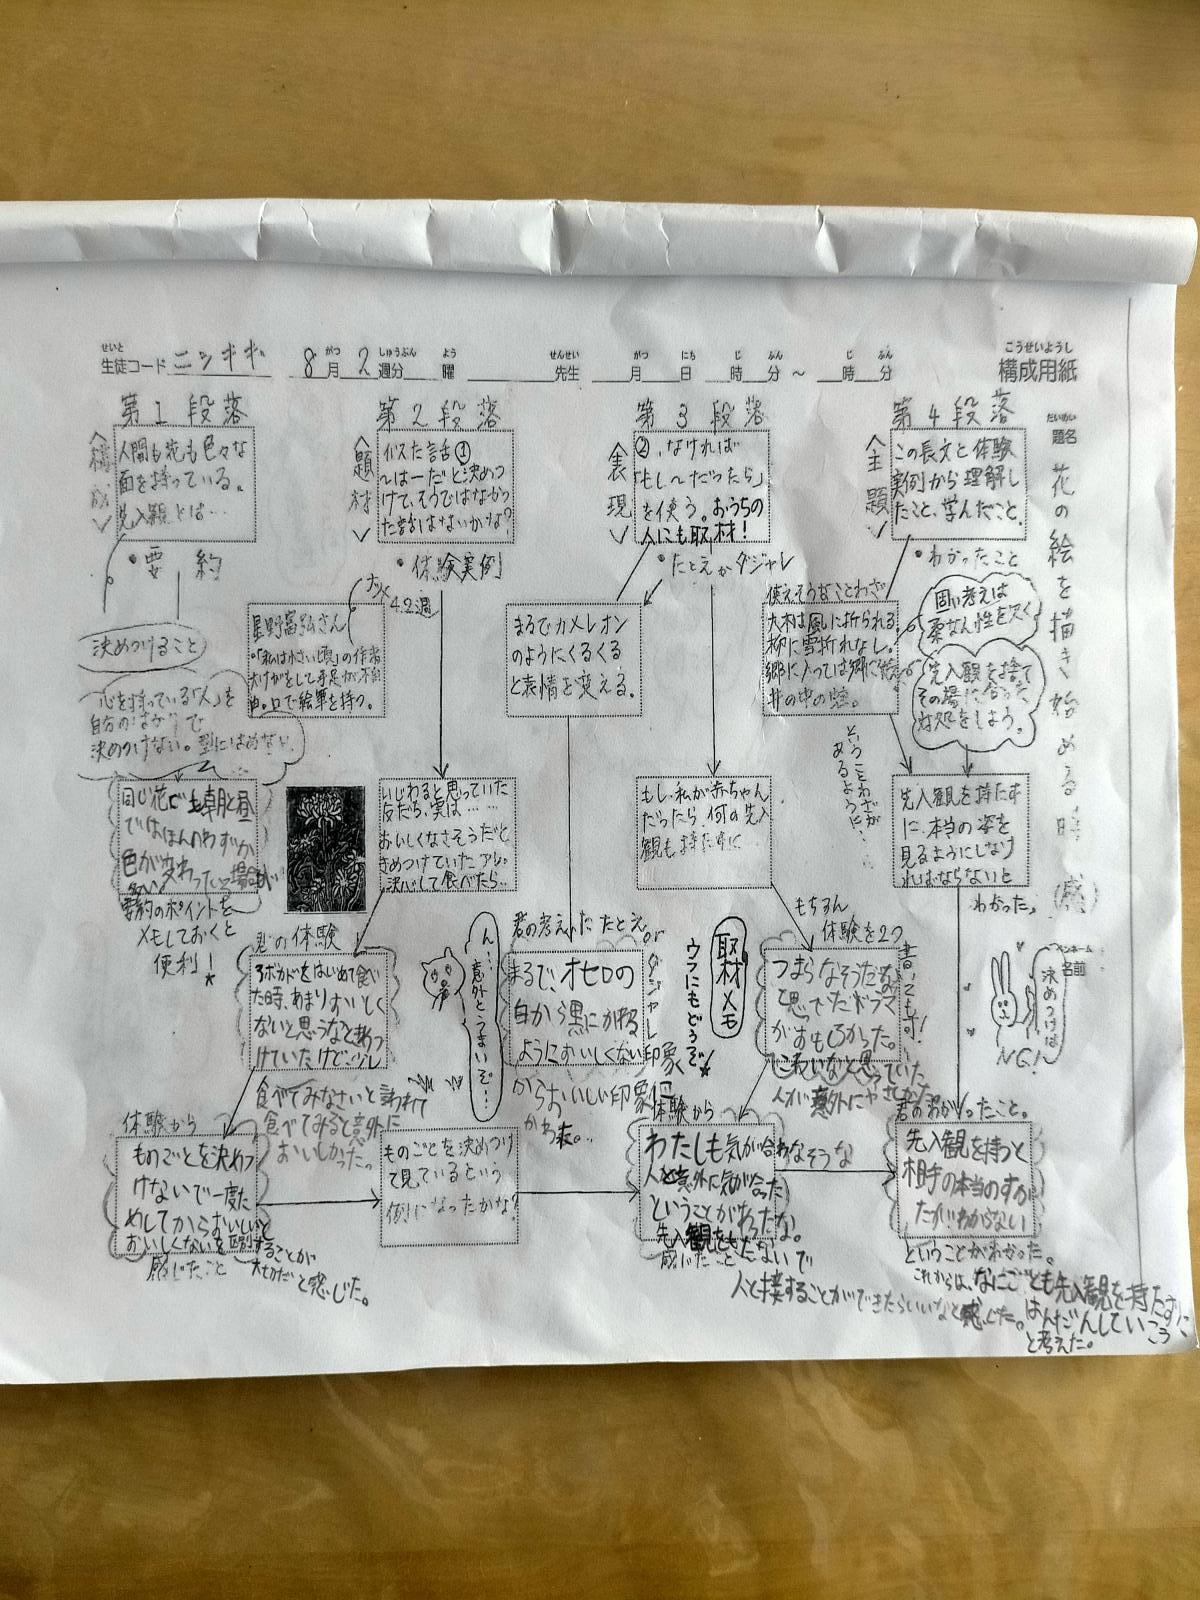 せいと
生徒コード ニシギギ
8月2週分
がつ しゅうぶん よう せんせい がつ にち じ ふん じ ふん
曜 先生 月 日 時 分 ～ 時 分
こうせいようし
構成用紙
だいめい
題名
花の絵を描き始める時(感)
ペンネーム
名前
第1段落
〈構成〉
人間も花も色々な
面を持っている。
先入観とは…
・要約
決めつけること
心を持っている「人」を
決めつけない。型にはめない。
同じ花でも朝と昼
ではほんのわずか
色が変わった
要約のポイントを
メモしておくと
便利!
第2段落
〈題材〉
似た話①
〜は一だと決めつ
けて、そうではなかっ
た話はないかな?
・体験実例
4.2週
星野富弘さん
・「私は小さい頃」の作者
大けがをして手足が不自
由。口で絵筆を持つ。
いじわると思っていた
友だち、実は……
おいしくなさそうだと
きめつけていたアレ。
決心して食べたら…
君の体験
アボカドをはじめて食べ
た時、あまりおいしく
ないと思うなと決めつ
けていたけど、ママに
食べてみなさいと言われて
食べてみると意外に
おいしかった。
ん…意外とうまいぞ…
体験から
ものごとを決めつ
けないで一度た
めしてからおいしいと
おいしくないを区別することが
感じたこと 大切だと感じた。
ものごとを決めつけ
て見ているという
例になったかな?
第3段落
〈表現〉
②、なければ
「もし〜だったら」
を使う。おうちの
人にも取材!
・たとえかダジャレ
まるでカメレオン
のようにくるくる
と表情を変える。
もし、私が赤ちゃん
だったら、何の先入
観も持たずに…
君の考えたたとえorダジャレ
まるで、オセロの
白から黒にかわる
ようにおいしくない印象
からおいしい印象に
かわった。
取材メモ
ウラにもどうぞ
もちろん
体験を2つ
書いてもOK!
つまらなそうだなあ
と思ってたドラマ
がおもしろかった。
こわいなと思っていた
人が意外にやさしかった
体験から
わたしも気が合わなそうな
人と意外に気が合った
ということがあったな。
先入観をもたないで
感じたこと
人と接することができたらいいなと感じた。
第4段落
〈主題〉
この長文と体験
実例から理解し
たこと、学んだこと。
・わかったこと
使えそうなことわざ
大木は風に折られる
柳に雪折れなし。
郷に入っては郷に従え
井の中の蛙。
ということわざが
あるように…
固い考えは
柔なん性を欠く
先入観を捨て
その場に合った
対処をしよう。
先入観を持たず
に、本当の姿を
見るようにしなけ
ればならないと
わかった。
決めつけは
NG!
君のわかったこと。
先入観を持つと
相手の本当のすが
たがわからない
ということがわかった。
これからは、なにごとも先入観を持たずに
はんだんしていこう
と考えた。